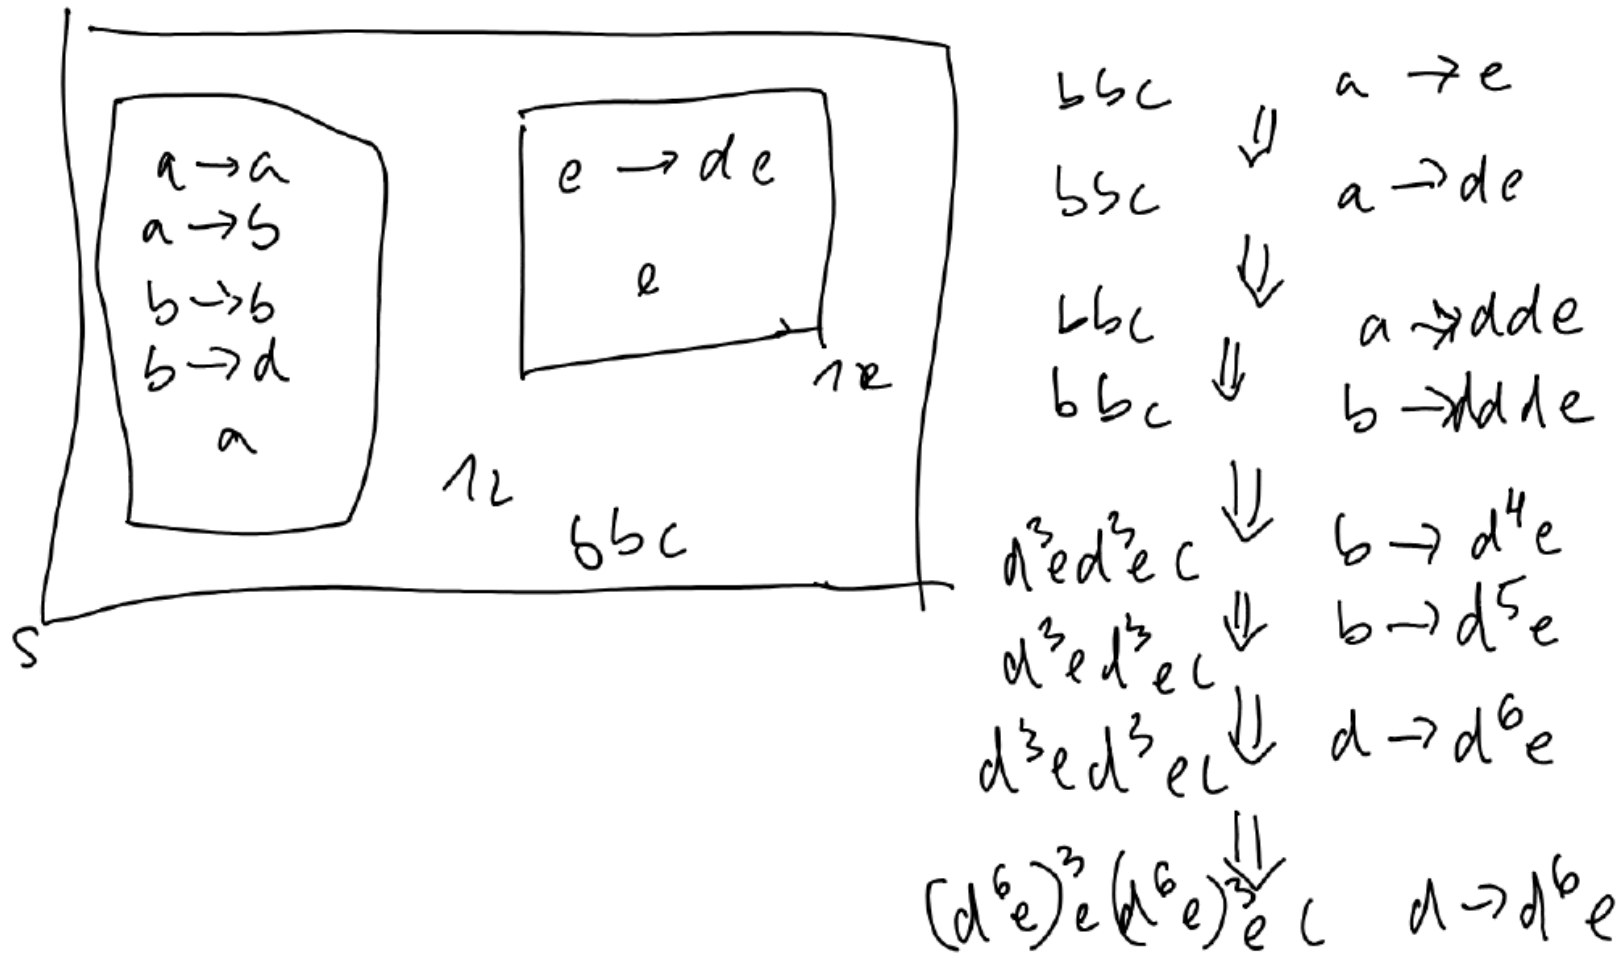 a → a
a → b
b → b
b → d
a
e → d e
e
1R
1L
b b c
S
b b c a → e
⇓
b b c a → d e
⇓
b b c a → d d e
⇓
b b c b → d d d e
⇓
d³ e d³ e c b → d⁴ e
⇓
d³ e d³ e c b → d⁵ e
⇓
d³ e d³ e c d → d⁶ e
⇓
(d⁶ e)³ e (d⁶ e)³ e c d → d⁶ e